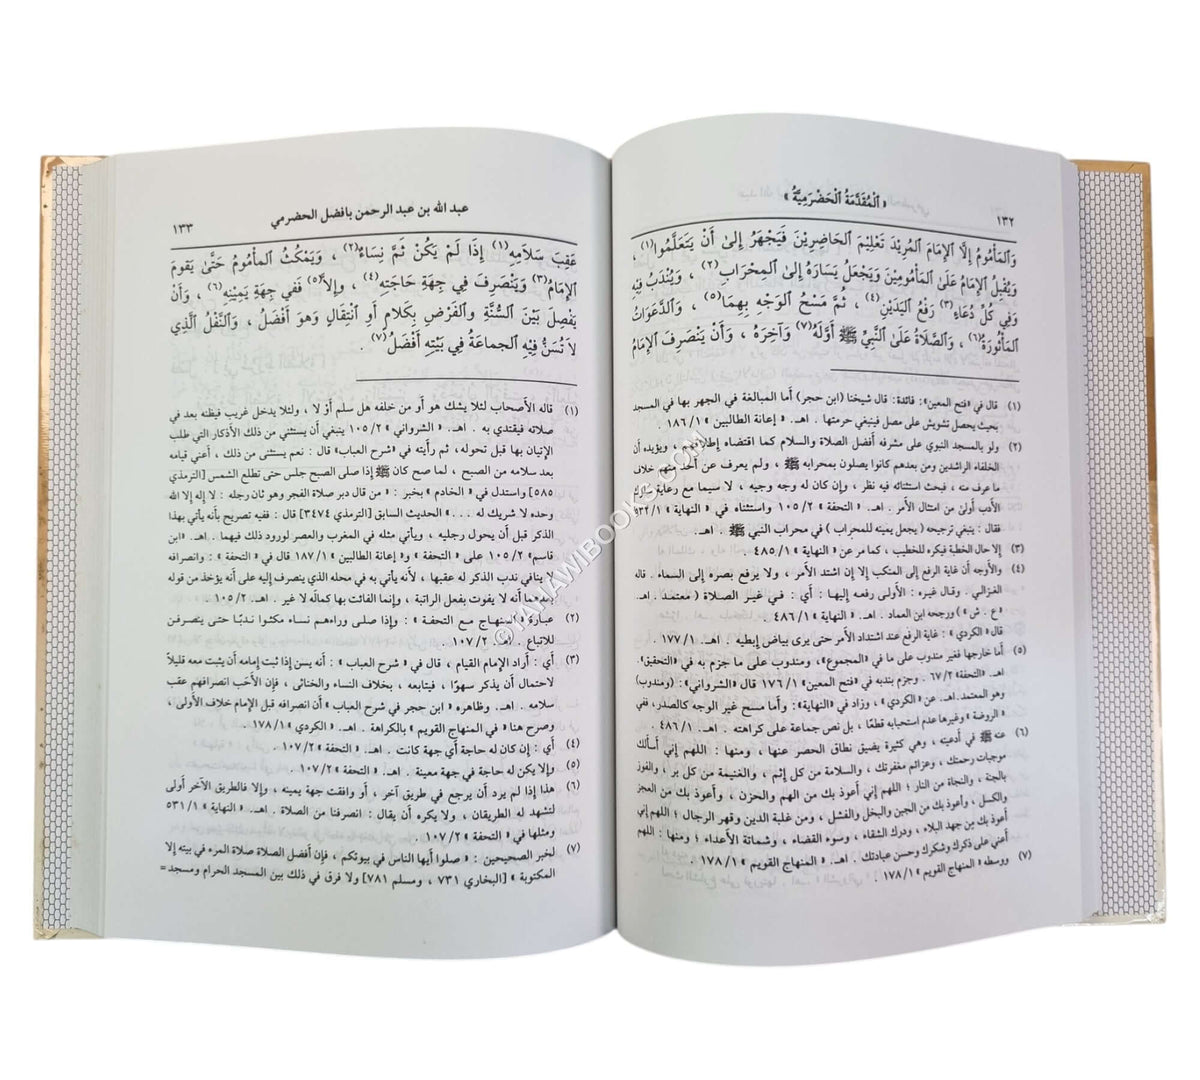 ١٣٢
« ٱلْمُقَدَّمَةُ ٱلْحَضْرَمِيَّةُ »
وَٱلمَأْمُومُ إِلَّا ٱلإِمَامَ ٱلمُرِيْدَ تَعْلِيْمَ ٱلحَاضِرِيْنَ فَيَجْهَرُ إِلىٰ أَنْ يَتَعَلَّمُوا(١) ،
وَيُقْبِلُ ٱلإِمَامُ عَلَىٰ ٱلمَأْمُومِيْنَ وَيَجْعَلُ يَسَارَهُ إِلىٰ ٱلمِحْرَابِ(٢) ، وَيُنْدَبُ فِيْهِ
وَفِي كُلِّ دُعَاءٍ(٣) رَفْعُ ٱليَدَيْنِ(٤) ، ثُمَّ مَسْحُ ٱلوَجْهِ بِهِمَا(٥) ، وَٱلدَّعَوَاتُ
ٱلمَأْثُوْرَةُ(٦) ، وَٱلصَّلَاةُ عَلىٰ ٱلنَّبِيِّ ﷺ أَوَّلَهُ(٧) وَآخِرَهُ ، وَأَنْ يَنْصَرِفَ ٱلإِمَامُ
(١) قال في «فتح المعين»: فائدة: قال شيخنا (ابن حجر) أما المبالغة في الجهر بها في المسجد
بحيث يحصل تشويش على مصل فينبغي حرمتها . اهـ. « إعانة الطالبين » ١٨٦/١ .
(٢) ولو بالمسجد النبوي على مشرفه أفضل الصلاة والسلام كما اقتضاه إطلاقهم ، ويؤيده أن
الخلفاء الراشدين ومن بعدهم كانوا يصلون بمحرابه ﷺ ، ولم يعرف عن أحد منهم خلاف
ما عرف منه ، فبحث استثنائه فيه نظر ، وإن كان له وجه وجيه ، لا سيما مع رعاية سلوك
الأدب أولىٰ من امتثال الأمر . اهـ. « التحفة » ١٠٥/٢ واستثناه في « النهاية »
فقال : ينبغي ترجيحه (يجعل يمينه للمحراب) في محراب النبي ﷺ . اهـ.
(٣) إلا حال الخطبة فيكره للخطيب ، كما مر عن « النهاية » ٤٨٥/١ .
(٤) والأوجه أن غاية الرفع إلى المنكب إلا إن اشتد الأمر ، ولا يرفع بصره إلى السماء . قاله
الغزالي . وقال غيره : الأولى رفعه إليها : أي : في غير الصلاة (معتمد . اهـ.
« ع . ش ») ورجحه ابن العماد . اهـ. « النهاية » ٤٨٦/١ .
قال « الكردي » : غاية الرفع عند اشتداد الأمر حتى يرى بياض إبطيه . اهـ. ١٧٧/١ .
(٥) أما خارجها فغير مندوب على ما في «المجموع»، ومندوب على ما جزم به في «التحقيق».
اهـ. «التحفة» ٦٧/٢ . وجزم بندبه في «فتح المعين» ١٧٦/١ قال «الشرواني»: (ومندوب)
وهو المعتمد . اهـ. عن «الكردي» ، وزاد في «النهاية»: وأما مسح غير الوجه كالصدر، ففي
« الروضة » وغيرها عدم استحبابه قطعًا ، بل نص جماعة على كراهته . ٤٨٦/١ .
(٦) عنه ﷺ في أدعيته ، وهي كثيرة يضيق نطاق الحصر عنها ، ومنها : اللهم إني أسألك
موجبات رحمتك ، وعزائم مغفرتك ، والسلامة من كل إثم ، والغنيمة من كل بر ، والفوز
بالجنة ، والنجاة من النار ؛ اللهم إني أعوذ بك من الهم والحزن ، وأعوذ بك من العجز
والكسل ، وأعوذ بك من الجبن والبخل والفشل ، ومن غلبة الدين وقهر الرجال ؛ اللهم إني
أعوذ بك من جهد البلاء ، ودرك الشقاء ، وسوء القضاء ، وشماتة الأعداء ؛ ومنها : اللهم
أعني على ذكرك وشكرك وحسن عبادتك . اهـ. « المنهاج القويم » ١٧٨/١ .
(٧) ووسطه « المنهاج القويم » ١٧٨/١ .
عبد الله بن عبد الرحمن بافضل الحضرمي
١٣٣
عَقِبَ سَلَامِهِ(١) إِذَا لَمْ يَكُنْ ثَمَّ نِسَاءٌ(٢) ، وَيَمْكُثُ ٱلمأْمُومُ حَتَّىٰ يَقومَ
ٱلإِمَامُ(٣) وَيَنْصَرِفَ فِي جِهَةِ حَاجَتِهِ(٤) ، وإلاَّ(٥) فَفي جِهَةِ يَمِيْنِهِ(٦) ، وَأَنْ
يَفْصِلَ بَيْنَ ٱلسُّنَّةِ وَٱلْفَرْضِ بِكَلامٍ أَوِ ٱنْتِقَالٍ وَهوَ أَفْضَلُ ، وَٱلنَّفْلُ ٱلَّذِي
لَا تُسَنُّ فِيْهِ ٱلجماعَةُ فِي بَيْتِهِ أَفْضَلُ(٧) .
(١) قاله الأصحاب لئلا يشك هو أو من خلفه هل سلم أوْ لا ، ولئلا يدخل غريب فيظنه بعد في
صلاته فيقتدي به . اهـ. « الشرواني » ١٠٥/٢ ينبغي أن يستثني من ذلك الأذكار التي طلب
الإتيان بها قبل تحوله، ثم رأيته في «شرح العباب» قال : نعم يستثنى من ذلك ، أعني قيامه
بعد سلامه من الصبح ، لما صح كان ﷺ إذا صلى الصبح جلس حتى تطلع الشمس [الترمذي
٥٨٥] واستدل في « الخادم » بخبر : « من قال دبر صلاة الفجر وهو ثان رجله : لا إله إلا الله
وحده لا شريك له . . . » الحديث السابق [الترمذي ٣٤٧٤] قال : ففيه تصريح بأنه يأتي بهذا
الذكر قبل أن يحول رجليه ، ويأتي مثله في المغرب والعصر لورود ذلك فيهما . اهـ. «ابن
قاسم» ١٠٥/٢ على « التحفة » و« إعانة الطالبين » ١٨٧/١ قال في « التحفة » : وانصرافه
لا ينافي ندب الذكر له عقبها ، لأنه يأتي به في محله الذي ينصرف إليه على أنه يؤخذ من قوله
بعدهما أنه لا يفوت بفعل الراتبة ، وإنما الفائت بها كماله لا غير . اهـ. ١٠٥/٢ .
(٢) عبارة « المنهاج مع التحفة » : وإذا صلى وراءهم نساء مكثوا ندبًا حتى ينصرفن
للاتباع . اهـ. ١٠٧/٢ .
(٣) أي : أراد الإمام القيام ، قال في « شرح العباب » : أنه يسن إذا ثبت إمامه أن يثبت معه قليلاً
لاحتمال أن يذكر سهوًا ، فيتابعه ، بخلاف النساء والخناثى ، فإن الأحب انصرافهم عقب
سلامه . اهـ. وظاهره « ابن حجر في شرح العباب » : أن انصرافه قبل الإمام خلاف الأولى ،
وصرح هنا « في المنهاج القويم » بالكراهة . اهـ. « الكردي » ١٧٨/١ .
(٤) أي : إن كان له حاجة أي جهة كانت . اهـ. « التحفة » ١٠٧/٢ .
(٥) وإلا يكن له حاجة في جهة معينة . اهـ. « التحفة » ١٠٧/٢ .
(٦) هذا إذا لم يرد أن يرجع في طريق آخر ، أو وافقت جهة يمينه ، وإلا فالطريق الآخر أولى
لتشهد له الطريقان ، ولا يكره أن يقال : انصرفنا من الصلاة . اهـ. « النهاية » ٥٣١/١
ومثلها في « التحفة » ١٠٧/٢ .
(٧) لخبر الصحيحين : « صلوا أيها الناس في بيوتكم ، فإن أفضل الصلاة صلاة المرء في بيته إلا
المكتوبة » [البخاري ٧٣١ ، ومسلم ٧٨١] ولا فرق في ذلك بين المسجد الحرام ومسجد=